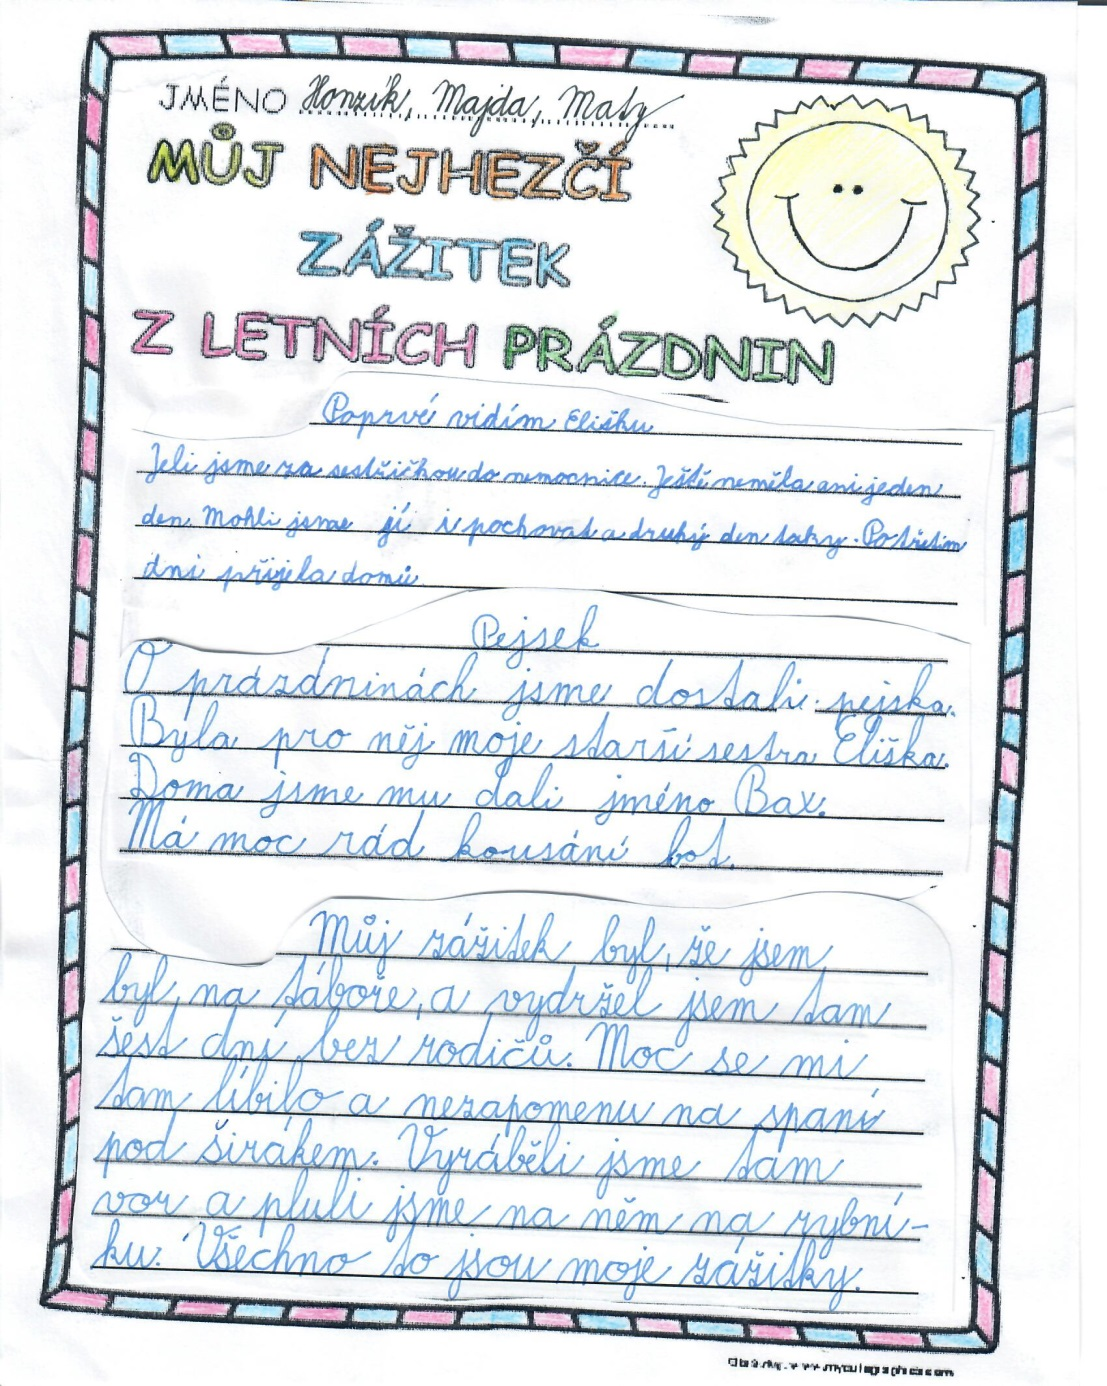 JMÉNO Honzík, Majda, Maty
MŮJ NEJHEZČÍ
ZÁŽITEK
Z LETNÍCH PRÁZDNIN
Poprvé vidím Elišku
Jeli jsme za sestřičkou do nemocnice. Ještě neměla ani jeden
den. Mohli jsme jí i pochovat a druhý den taky. Po třetím
dni přijela domů
Pejsek
O prázdninách jsme dostali pejska.
Byla pro něj moje starší sestra Eliška.
Doma jsme mu dali jméno Bax.
Má moc rád kousání bot.
Můj zážitek byl, že jsem
byl, na táboře, a vydržel jsem tam
šest dní bez rodičů. Moc se mi
tam líbilo a nezapomenu na spaní
pod širákem. Vyráběli jsme tam
vor a pluli jsme na něm na rybní-
ku. Všechno to jsou moje zážitky.